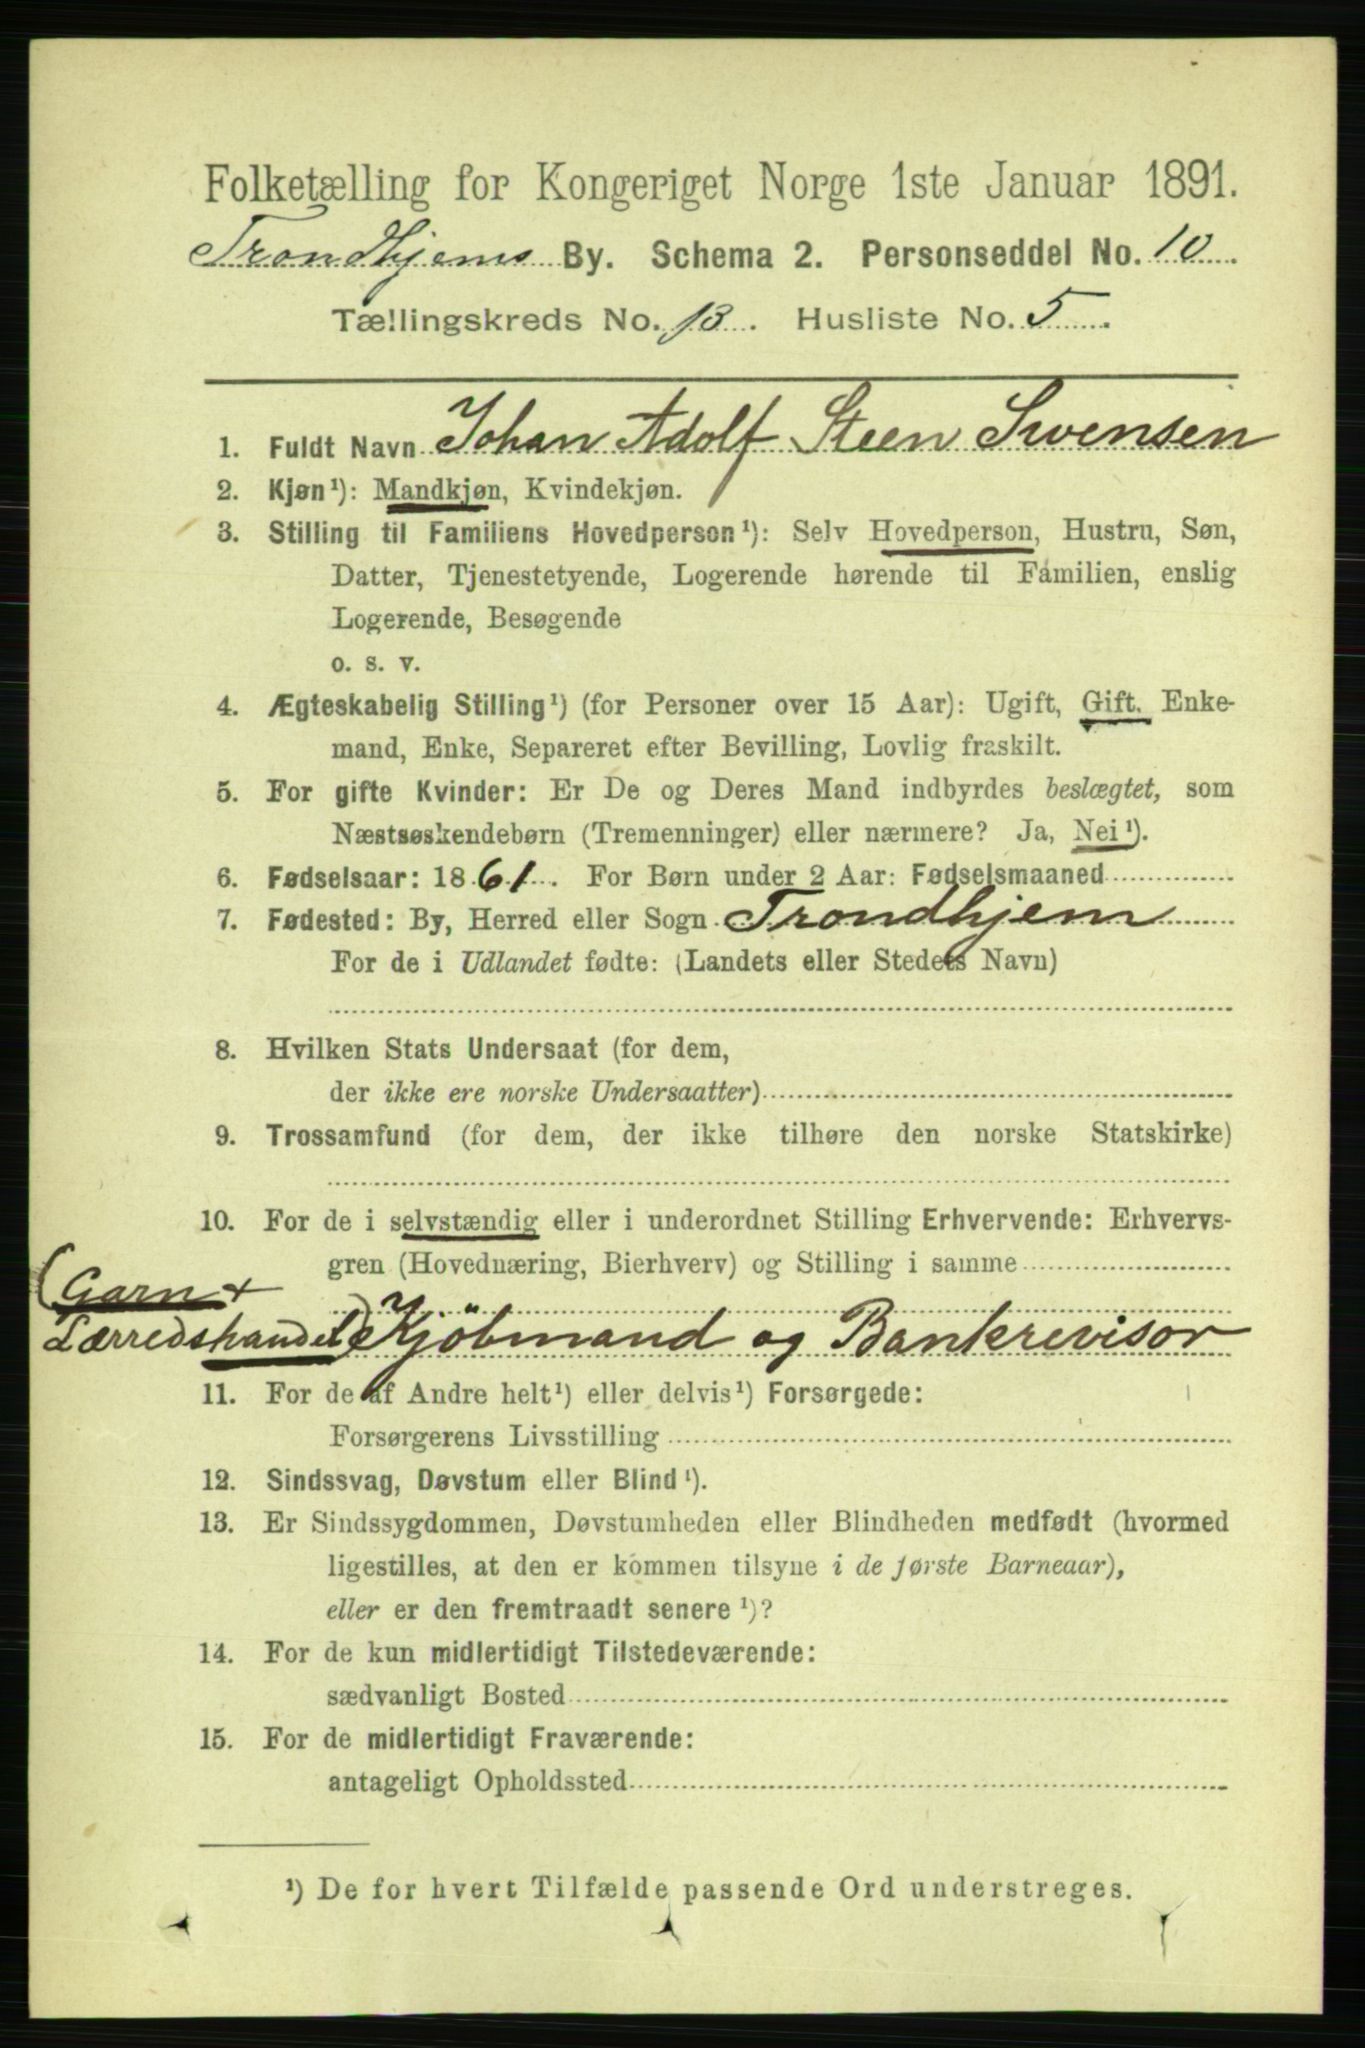 Folketælling for Kongeriget Norge 1ste Januar 1891.
Trondhjems By. Schema 2. Personseddel No. 10
Tællingskreds No. 13. Husliste No. 5.
1. Fuldt Navn Johan Adolf Steen Svensen
2. Kjøn¹): Mandkjøn, Kvindekjøn.
3. Stilling til Familiens Hovedperson¹): Selv Hovedperson, Hustru, Søn,
Datter, Tjenestetyende, Logerende hørende til Familien, enslig
Logerende, Besøgende
o. s. v.
4. Ægteskabelig Stilling¹) (for Personer over 15 Aar): Ugift, Gift, Enke-
mand, Enke, Separeret efter Bevilling, Lovlig fraskilt.
5. For gifte Kvinder: Er De og Deres Mand indbyrdes beslægtet, som
Næstsøskendebørn (Tremenninger) eller nærmere? Ja, Nei¹).
6. Fødselsaar: 1861. For Børn under 2 Aar: Fødselsmaaned
7. Fødested: By, Herred eller Sogn Trondhjem
For de i Udlandet fødte: (Landets eller Stedets Navn)
8. Hvilken Stats Undersaat (for dem,
der ikke ere norske Undersaatter)
9. Trossamfund (for dem, der ikke tilhøre den norske Statskirke)
10. For de i selvstændig eller i underordnet Stilling Erhvervende: Erhvervs-
gren (Hovednæring, Bierhverv) og Stilling i samme
(Garn +
Lærredshandel) Kjöbmand og Bankrevisor
11. For de af Andre helt¹) eller delvis¹) Forsørgede:
Forsørgerens Livsstilling
12. Sindssvag, Døvstum eller Blind¹).
13. Er Sindssygdommen, Døvstumheden eller Blindheden medfødt (hvormed
ligestilles, at den er kommen tilsyne i de første Barneaar),
eller er den fremtraadt senere¹)?
14. For de kun midlertidigt Tilstedeværende:
sædvanligt Bosted
15. For de midlertidigt Fraværende:
antageligt Opholdssted
¹) De for hvert Tilfælde passende Ord understreges.